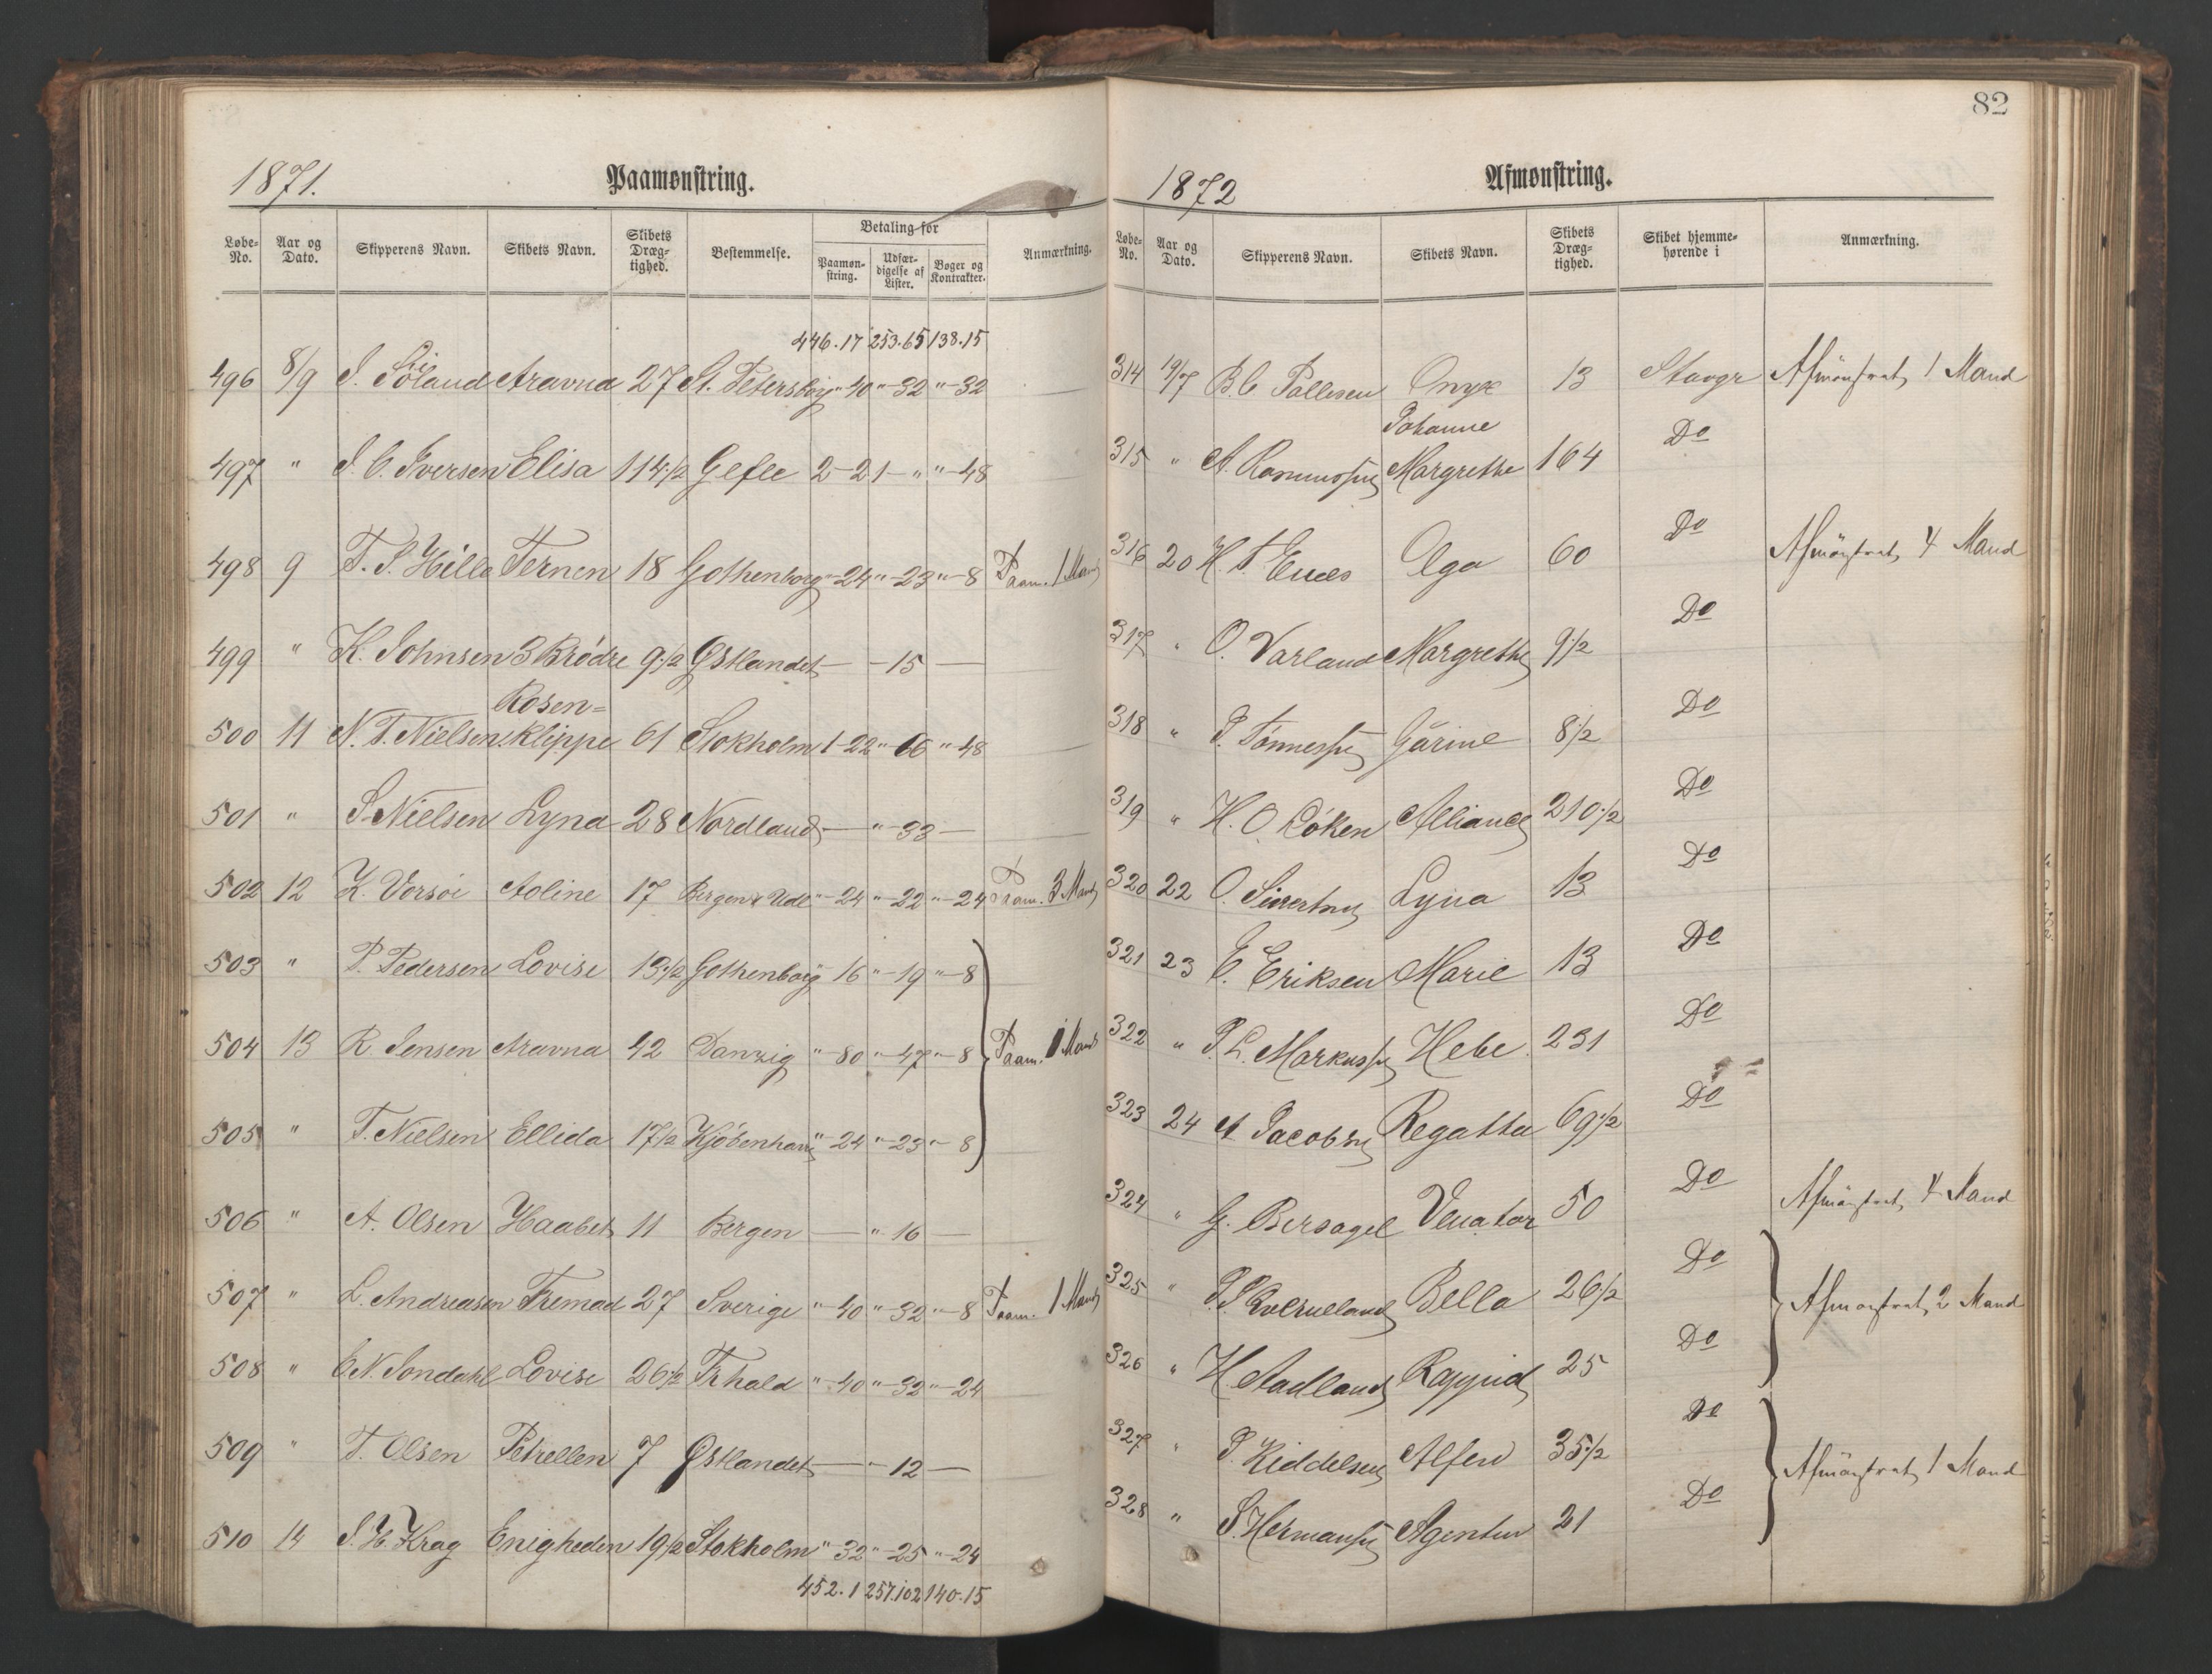 1871. Paamønstring.
Løbe-No. Aar og Dato. Skipperens Navn. Skibets Navn. Skibets Dræg-tighed. Bestemmelse. Betaling for Paamøn-string. Udfær-digelse af Lister. Bøger og Kontrakter. Anmærkning.
446.17 253.65 138.15
496 8/9 S. Söland Aravna 27 St. Petersborg " 40 " 32 " 32
497 " J. C. Iversen Elisa 114 1/2 Gefle 2 - 2 1 - " " - 48
498 9 T. S. Hille Ternen 18 Gothenborg " - 24 " - 23 " - 8 Paam. 1 Mand
499 " K. Johnsen 3 Brødre 9 1/2 Østlandet — - 15 —
Rosen=
500 11 N. T. Nielsen klippe 61 Stokholm 1 - 22 " - 66 " - 48
501 " S. Nielsen Lyna 28 Nordland — " - 33 —
502 12 K. Vorsöe Aoline 17 Bergen & Udl " - 24 " - 22 " - 24 Paam. 3 Mand
503 " P. Pedersen Lovise 13 1/2 Gothenborg 16 " - 19 " - 8
504 13 R. Jensen Aravna 42 Danzig " - 80 " - 47 " - 8 Paam. 1 Mand
505 " T. Nielsen Ellida 17 1/2 Kjöbenhavn " - 24 " - 23 " - 8
506 " A. Olsen Haabet 11 Bergen — " - 16 —
507 " L. Andreasen Fremad 27 Sverige " - 40 " - 32 " - 8 Paam. 1 Mand
508 " E. N. Sondahl Lovise 26 1/2 Frhald " - 40 " - 32 " - 24
509 " T. Olsen Petrellen 7 Østlandet — - 12 —
510 14 J. H. Krag Enigheden 19 1/2 Stokholm " 32 " - 25 " - 24
452.1 257.102 140.15
82
1872 Afmønstring.
Løbe-No. Aar og Dato. Skipperens Navn. Skibets Navn. Skibets Dræg-tighed. Skibet hjemme-hørende i Anmærkning.
314 19/7 B. C. Pallesen Onyx 13 Stavgr Afmönstret 1 Mand
Johanne
315 " A. Rasmussen Margrethe 164 Do
316 20 H. T. Enes Olga 60 Do Afmönstret 4 Mand
317 " O. Varland Margrethe 9 1/2 Do
318 " P. Tönnessen Gärine 8 1/2 Do
319 " H. O. Löken Alliance 210 1/2 Do
320 22 O. Sivertsen Lyna 13 Do
321 23 E. Eriksen Marie 13 Do
322 " P. L. Markussen Hebe 231 Do
323 24 A. Jacobsen Regatta 69 1/2 Do
324 " G. Bersagel Venator 50 Do Afmönstret 4 Mand
325 " P. Kverneland Bella 26 1/2 Do Afmönstret 2 Mand
326 " H. Aadland 25 Do
327 " P. Kiddelsen Alfen 35 1/2 Do Afmönstret 1 Mand
328 " S. Hermansen Agentur 21 Do